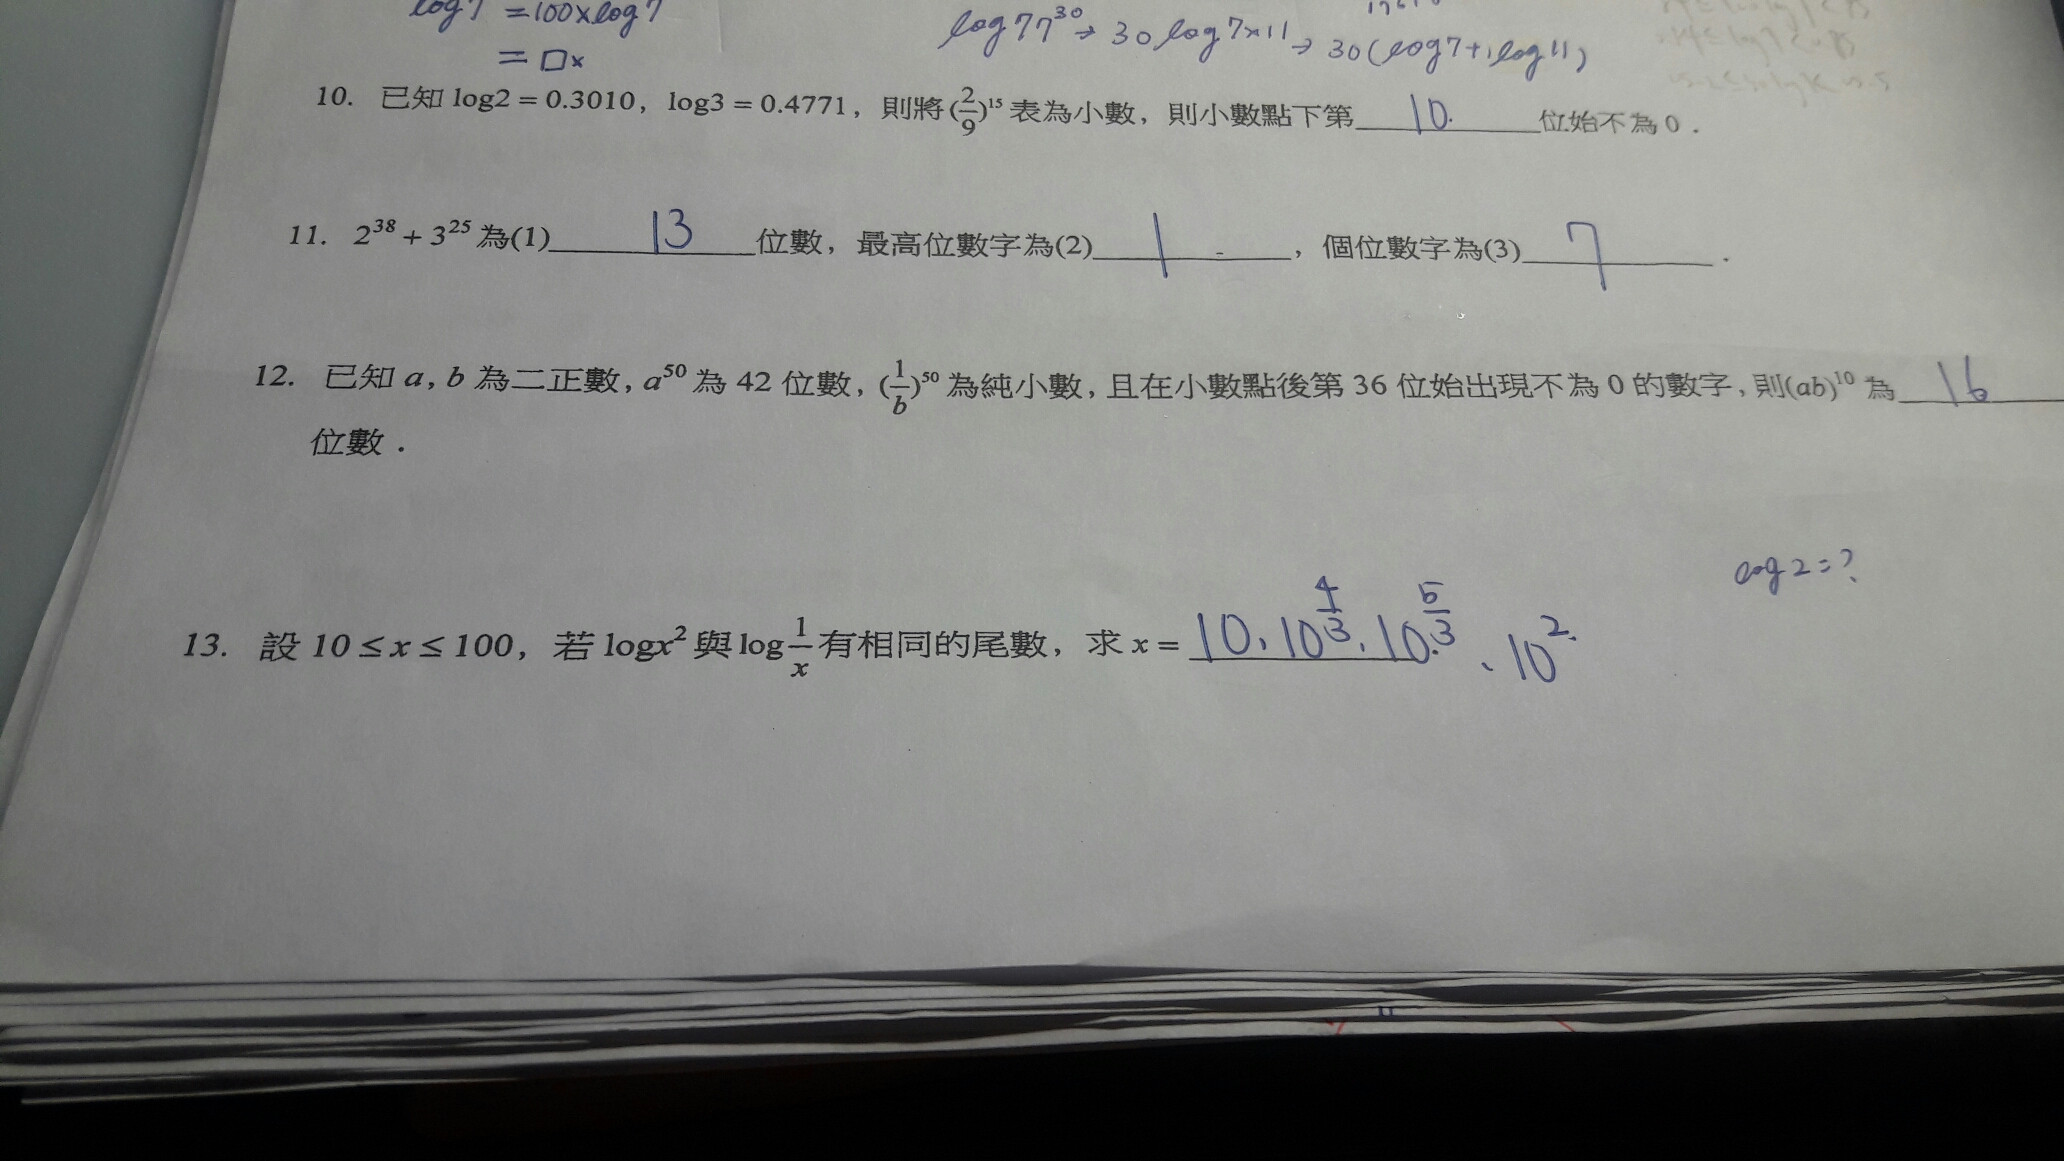 log7 =100×log7
= □x
log77³⁰→ 30 log7×11→ 30(log7+log11)
10. 已知 log2 = 0.3010，log3 = 0.4771，則將(2/9)¹⁵ 表為小數，則小數點下第 10. 位始不為 0．
11. 2³⁸ + 3²⁵ 為(1) 13 位數，最高位數字為(2) 1，個位數字為(3) 7．
12. 已知 a, b 為二正數, a⁵⁰ 為 42 位數, (1/b)⁵⁰ 為純小數, 且在小數點後第 36 位始出現不為 0 的數字, 則(ab)¹⁰ 為 16
位數．
log2=?
13. 設 10 ≤ x ≤ 100，若 logx² 與 log 1/x 有相同的尾數，求 x = 10、10^(4/3)、10^(5/3)、10²